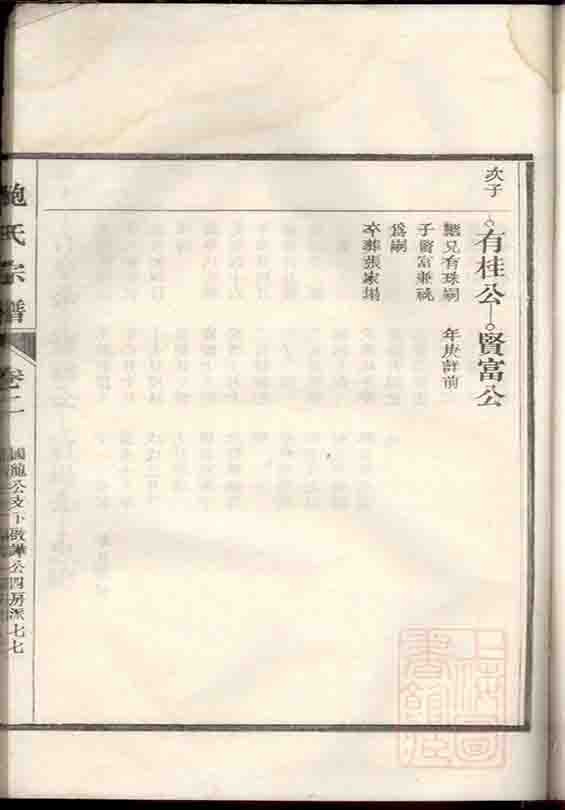 次子
有桂公 賢富公
繼兄有珠嗣
子賢富兼祧
爲嗣
卒葬張家塲
年庚詳前
鮑氏宗譜
卷二
國龍公支下啟譁公四房派七七
上海圖
書館藏